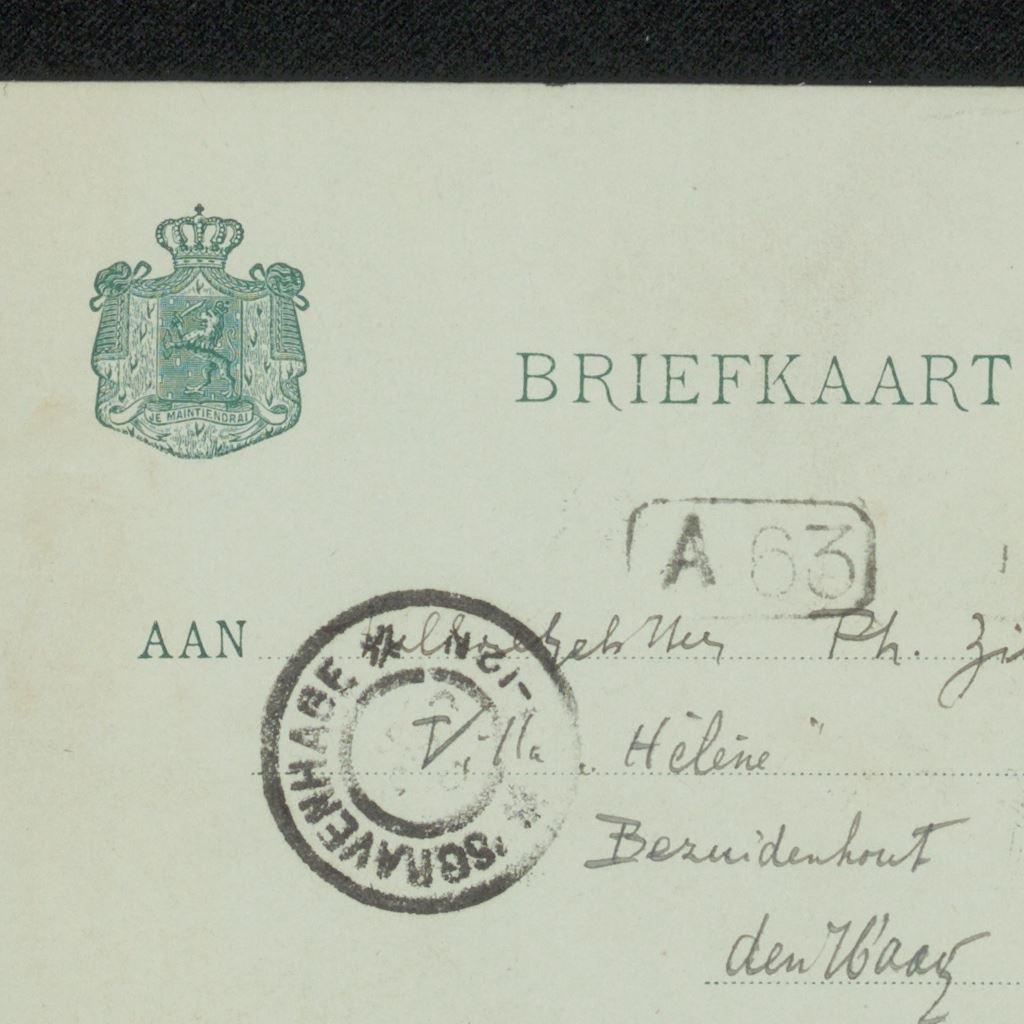 JE MAINTIENDRAI
BRIEFKAART
A 63
AAN WelEdelgeb. Heer Ph. Zi
'SGRAVENHAGE
-12N
Villa „Hélène"
Bezuidenhout
den Haag